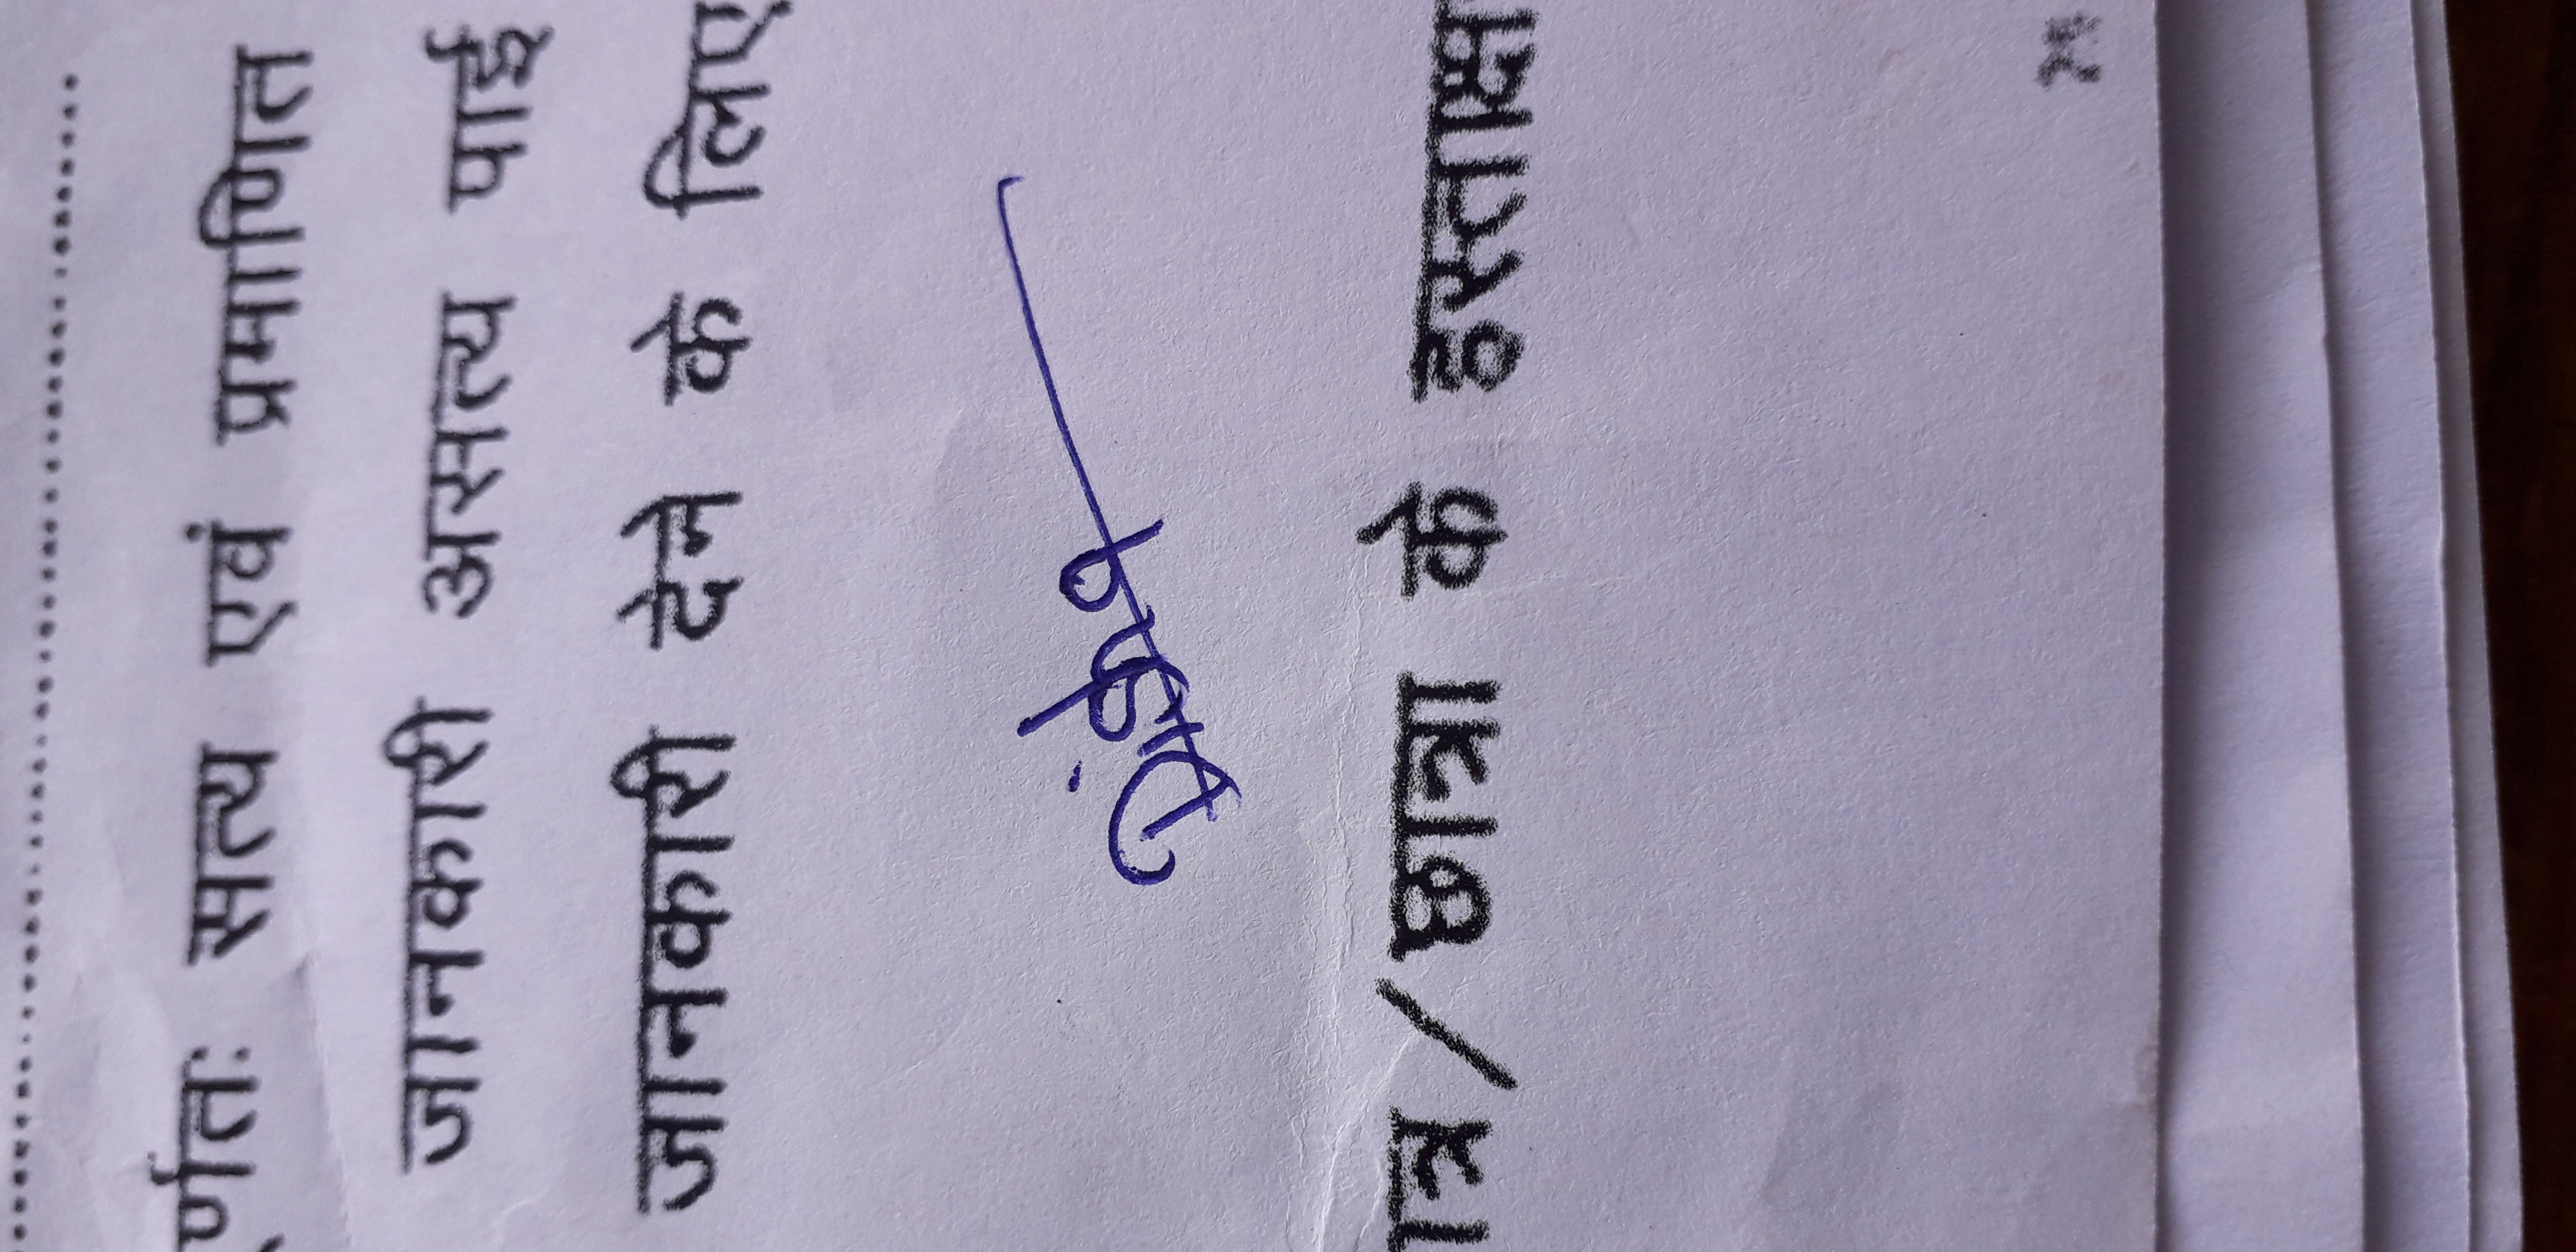 र्णतः सत्य एवं प्रमाणित
जानकारी असत्य पाई
जानकारी देने के लिए
ात्र / छात्रा के हस्ताक्ष